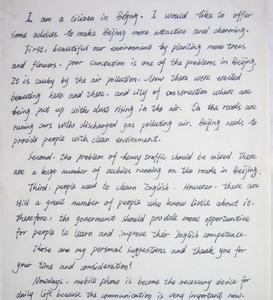 I am a citizen in Beijing. I would like to offer
some advices to make Beijing more attractive and charming.
First, beautiful our environment by planting more trees
and flowers. poor sanitation is one of the problems in Beijing.
It is by the air pollution. Now there were erected
beauting here and there, and city of construction where are
being put up with dust rising in the air. On the roads are
runing cars with discharged gas polluting air. Beijing needs to
provide people with clean enviroment.
Second. the problem of heavy traffic should be solved. There
are a huge number of vechies running on the roads in Beijing.
Third. people need to learn English. However. there are
still a great number of people who know little about it.
Therefore, the government should provide more opportunities
for people to learn and improve their English competence.
Those are my personal suggestions and thank you for
your time and consideration!
Nowdays, mobile phone is become the necessary device for
daily life because the communication is very important now.